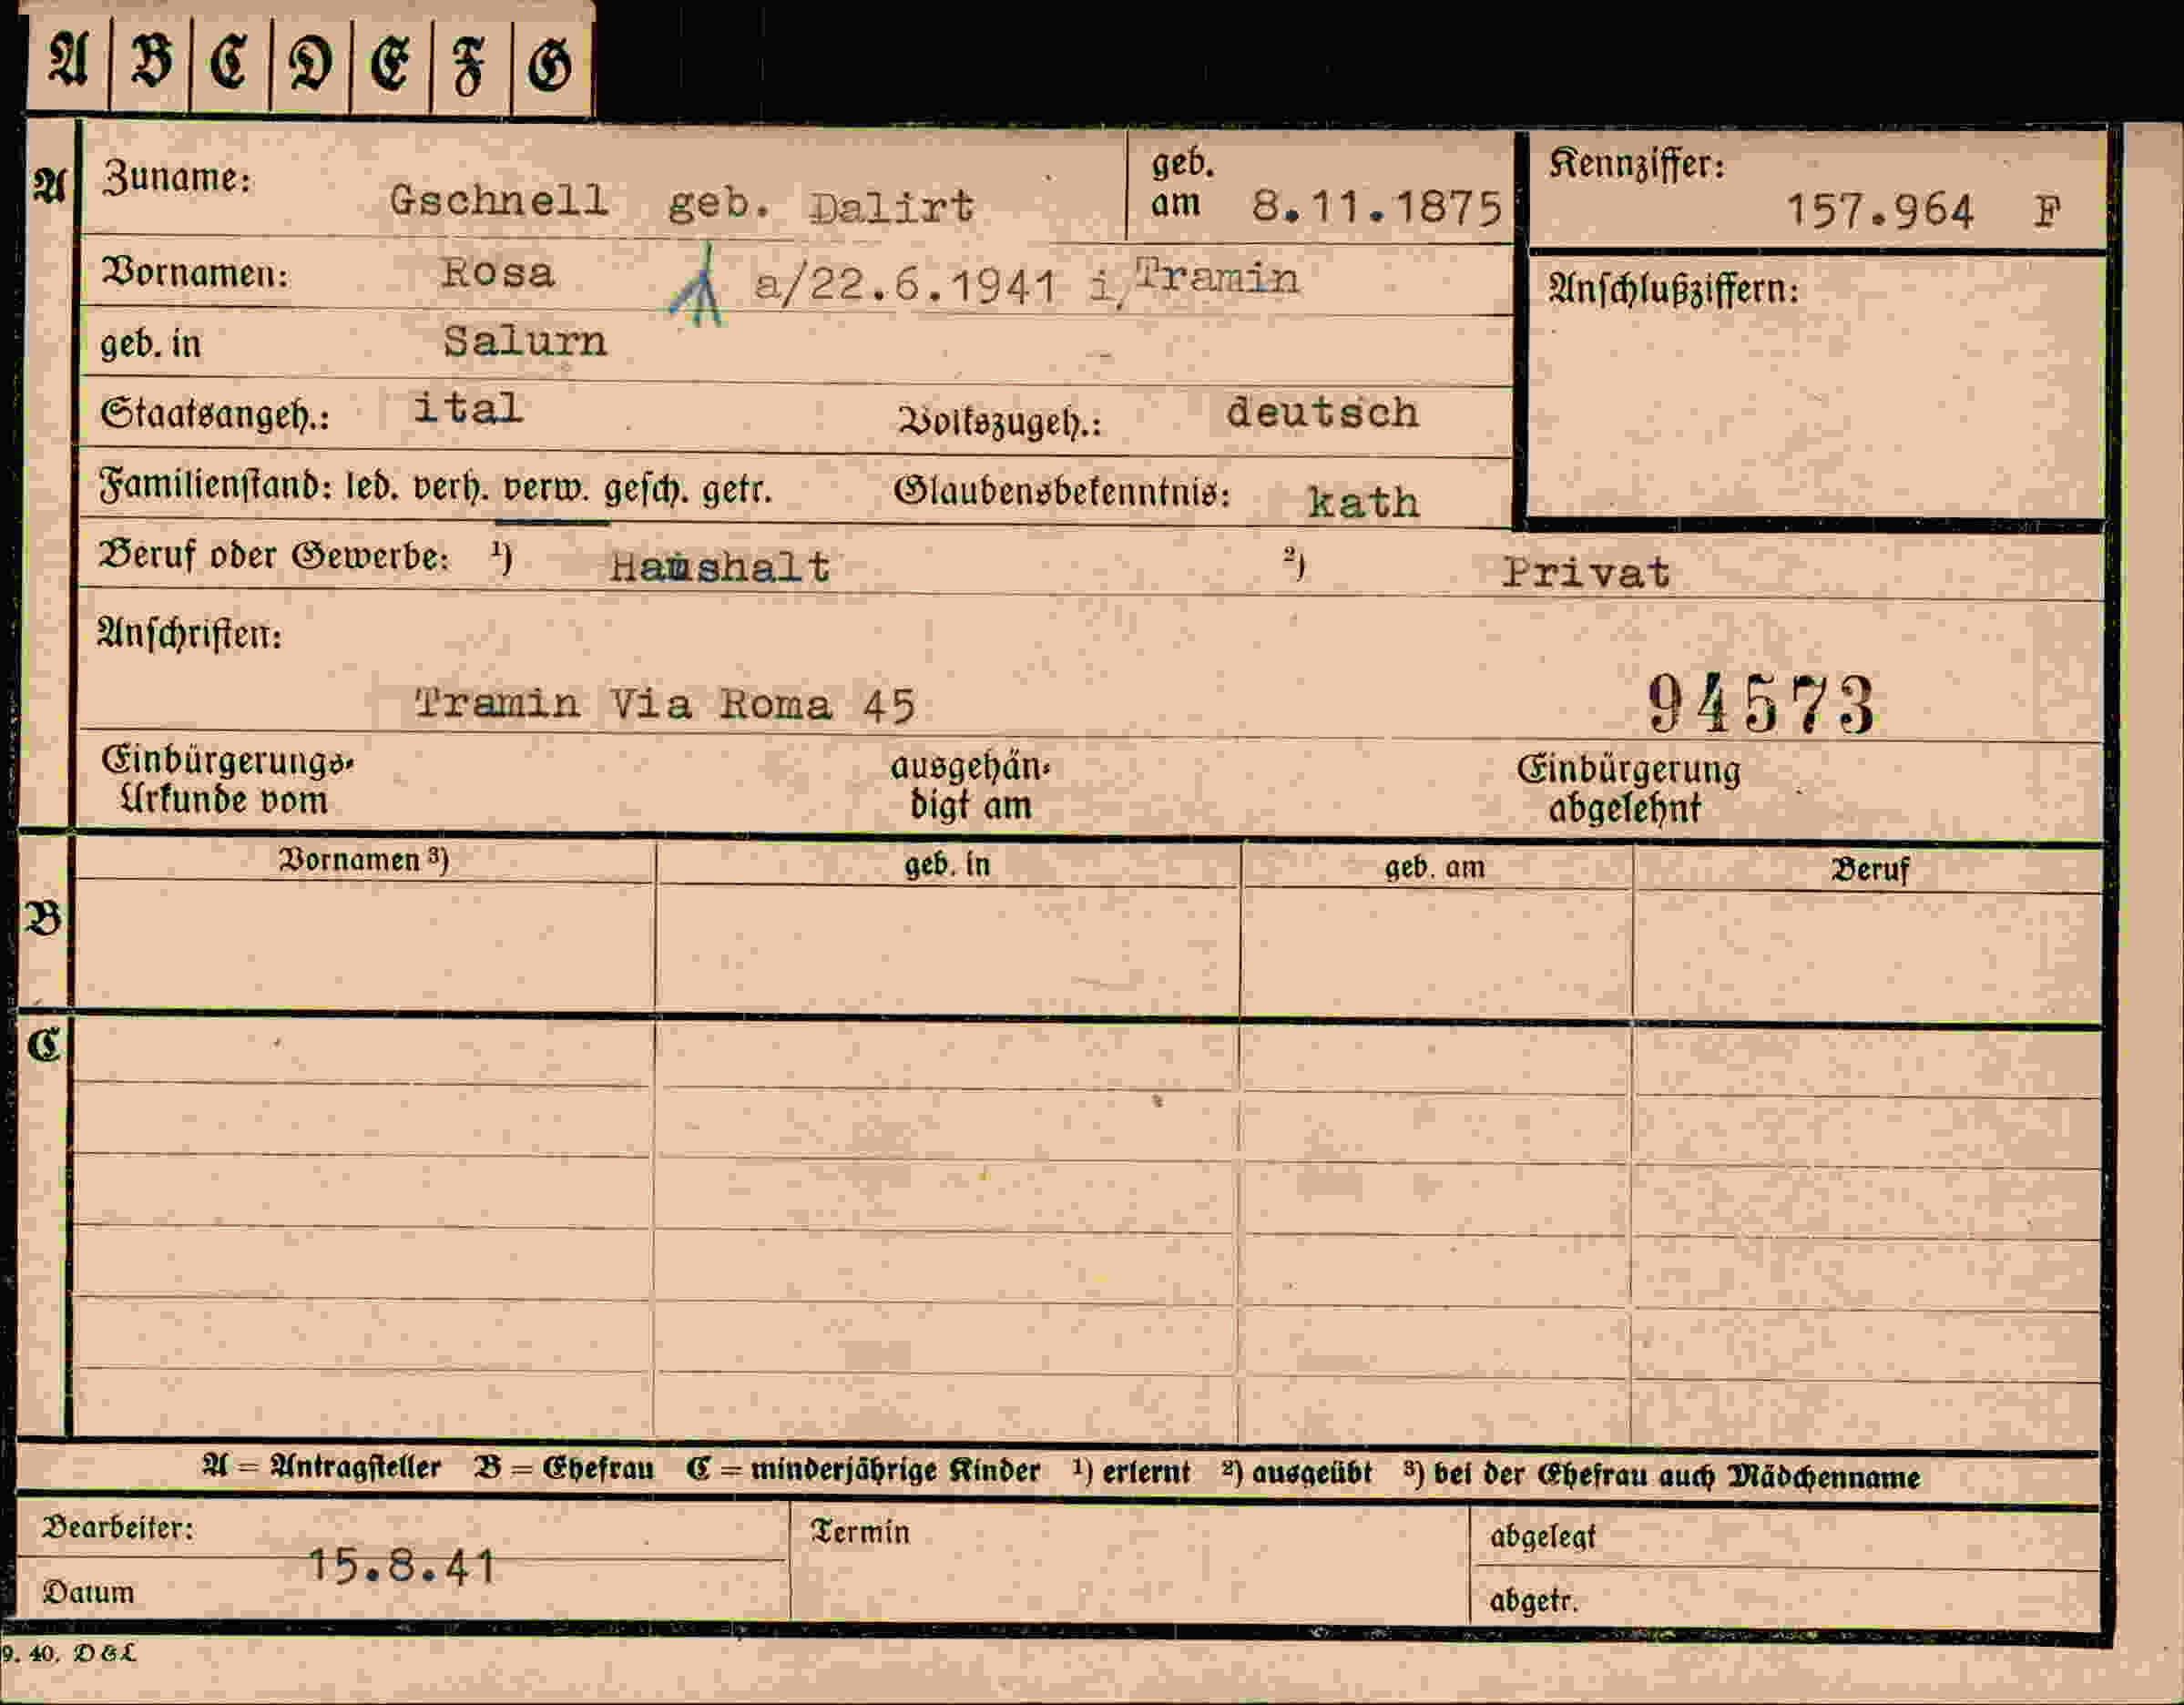 A B C D E F G
A Zuname: Gschnell geb. Dalirt geb. am 8.11.1875 Kennziffer: 157.964 F
Vornamen: Rosa a/22.6.1941 i, Tramin Anschlußziffern:
geb. in Salurn
Staatsangeh.: ital Volkszugeh.: deutsch
Familienstand: led. verh. verw. gesch. getr. Glaubensbekenntnis: kath
Beruf oder Gewerbe: 1) Haushalt 2) Privat
Anschriften:
Tramin Via Roma 45 94573
Einbürgerungs- ausgehän- Einbürgerung
Urkunde vom digt am abgelehnt
Vornamen 3) geb. in geb. am Beruf
B
C
A = Antragsteller B = Ehefrau C = minderjährige Kinder 1) erlernt 2) ausgeübt 3) bei der Ehefrau auch Mädchenname
Bearbeiter: Termin abgelegt
15.8.41
Datum abgetr.
9. 40. D & L